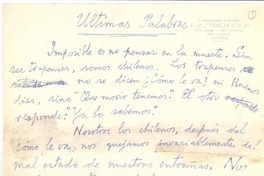 Ultimas Palabras
Imposible es no pensar en la muerte. Sin
ser trapenses, somos chilenos. Los trapenses
no se dicen ¿Cómo le va! ni Buenos
días, sino "Que morir tenemos." El otro
responde: "Ya lo sabemos."
Nosotros los chilenos, después del
como le va, nos quejamos invariablemente del
mal estado de nuestras entrañas. Nos